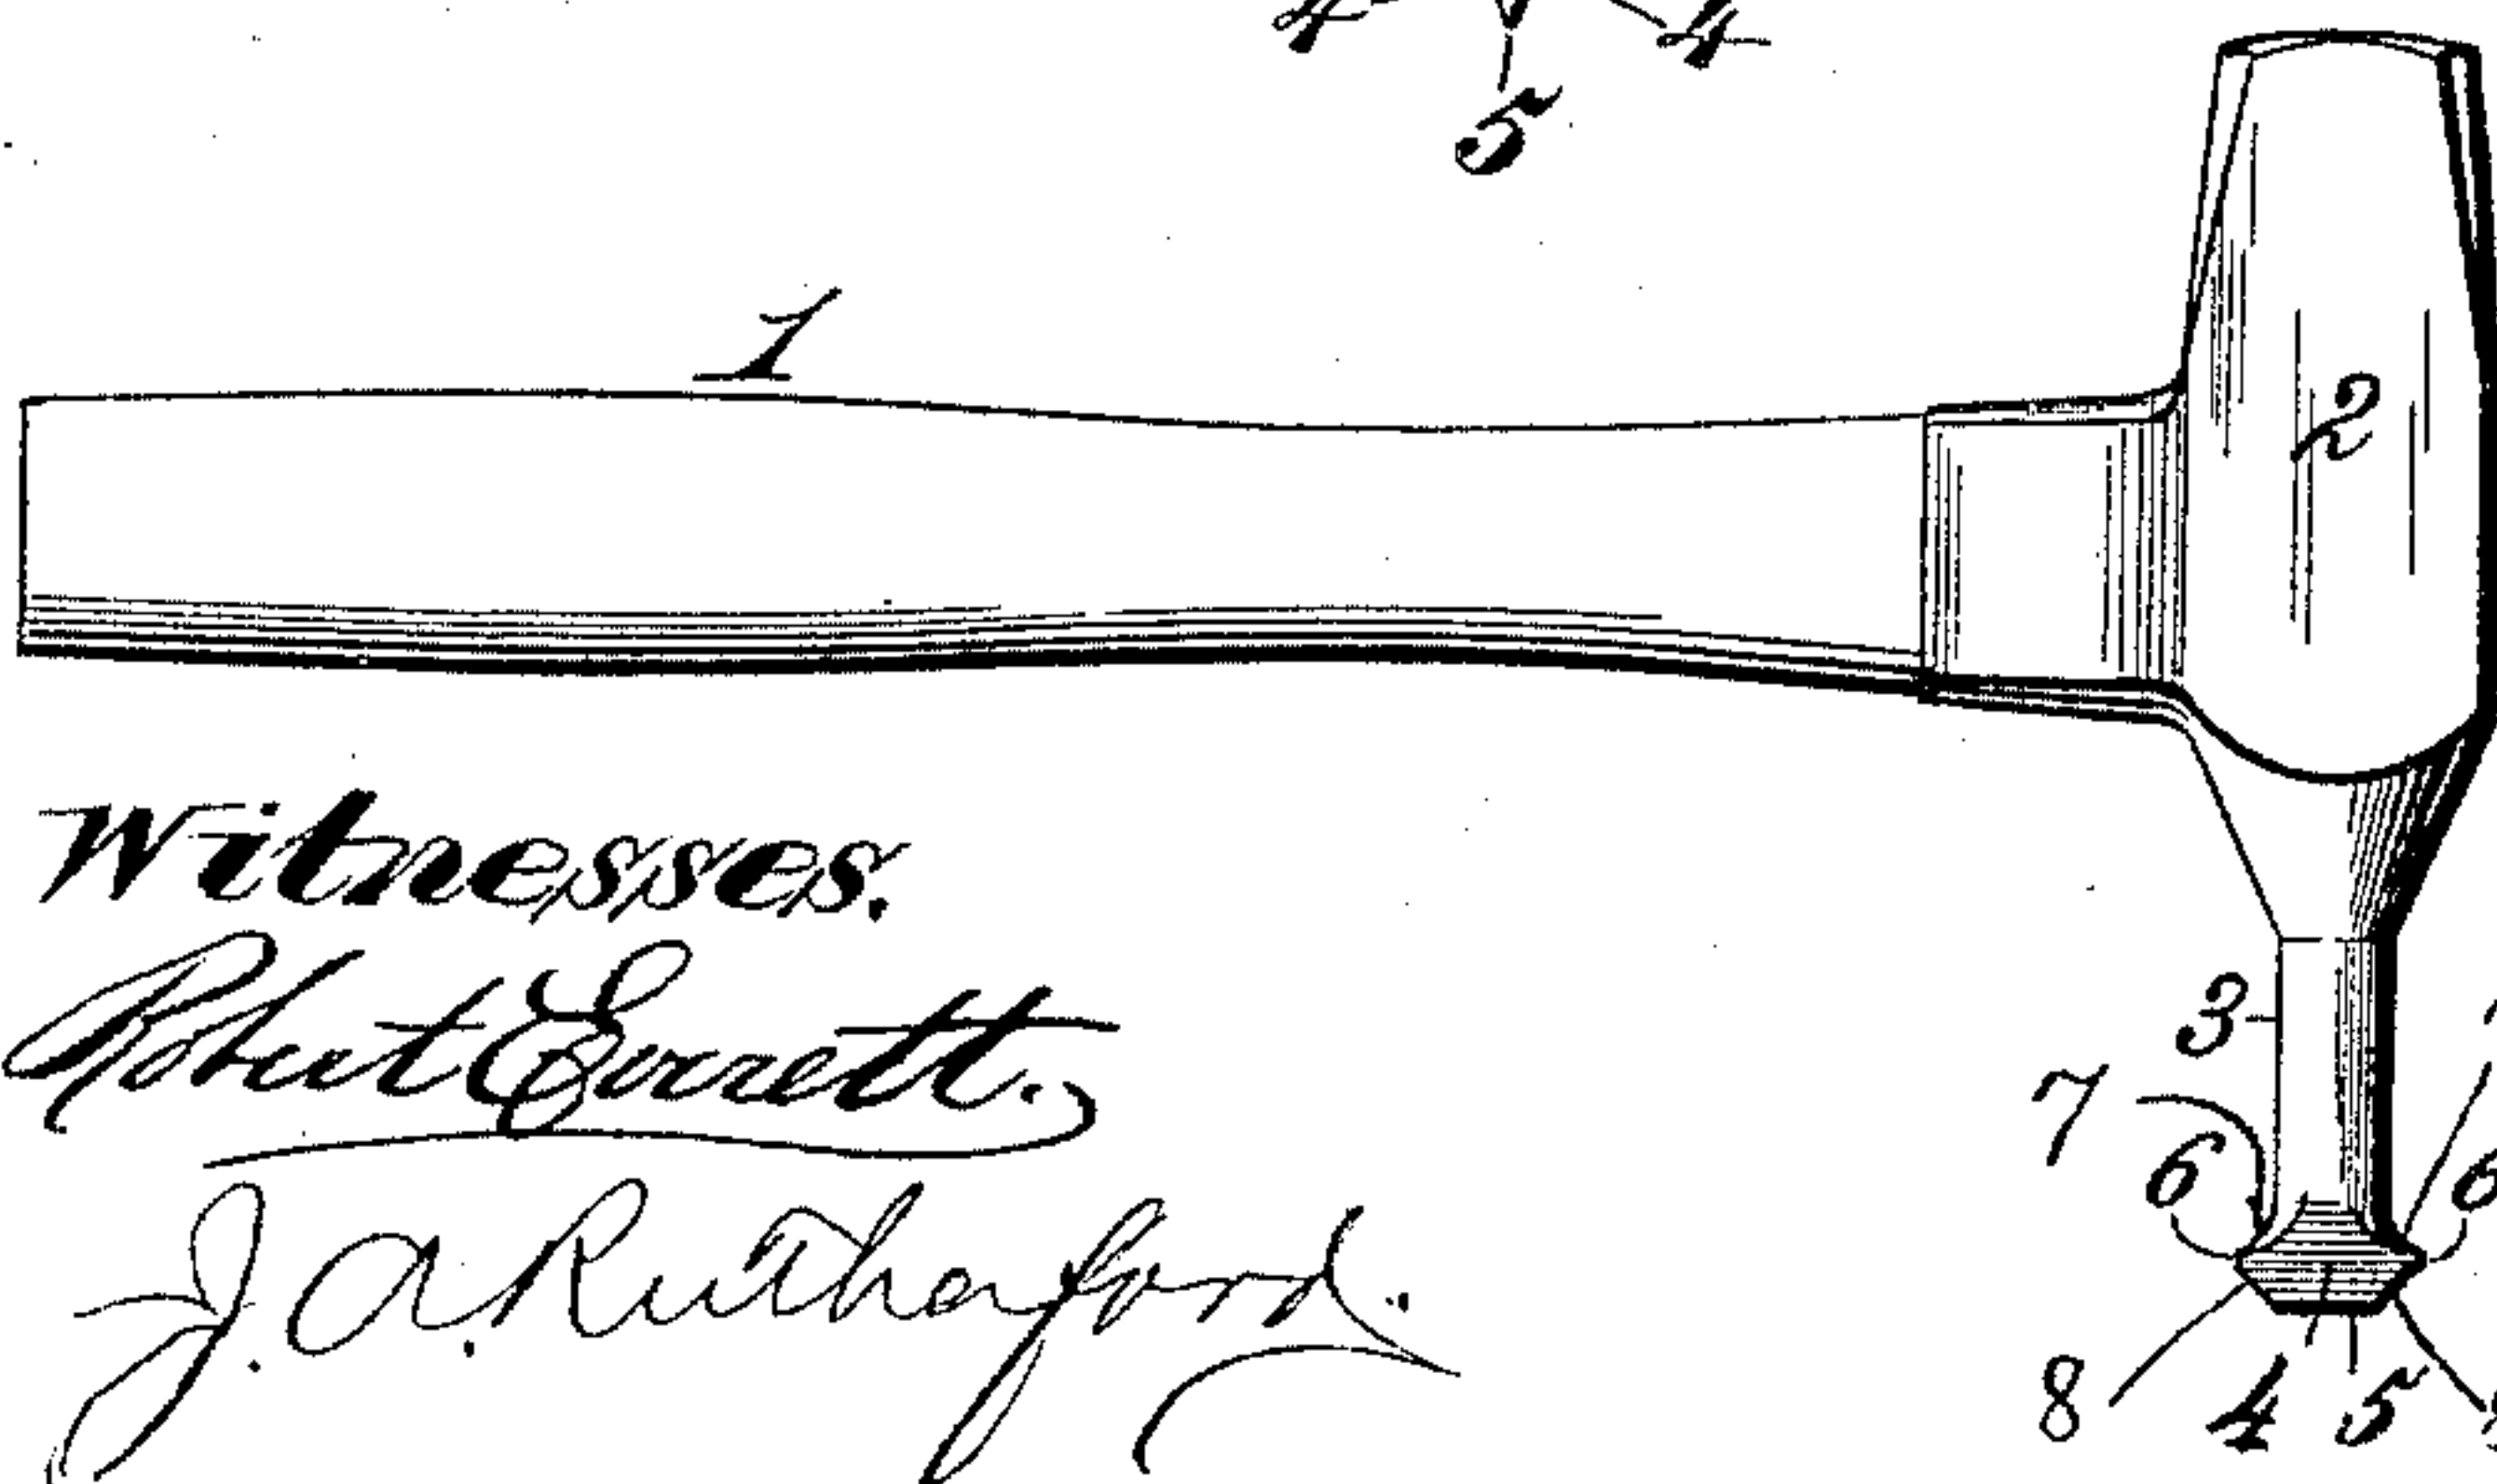 4 4
5
1
2
Witnesses.
Robert Everett.
3
7
6 6
J. A. Rutherford.
8 4 5